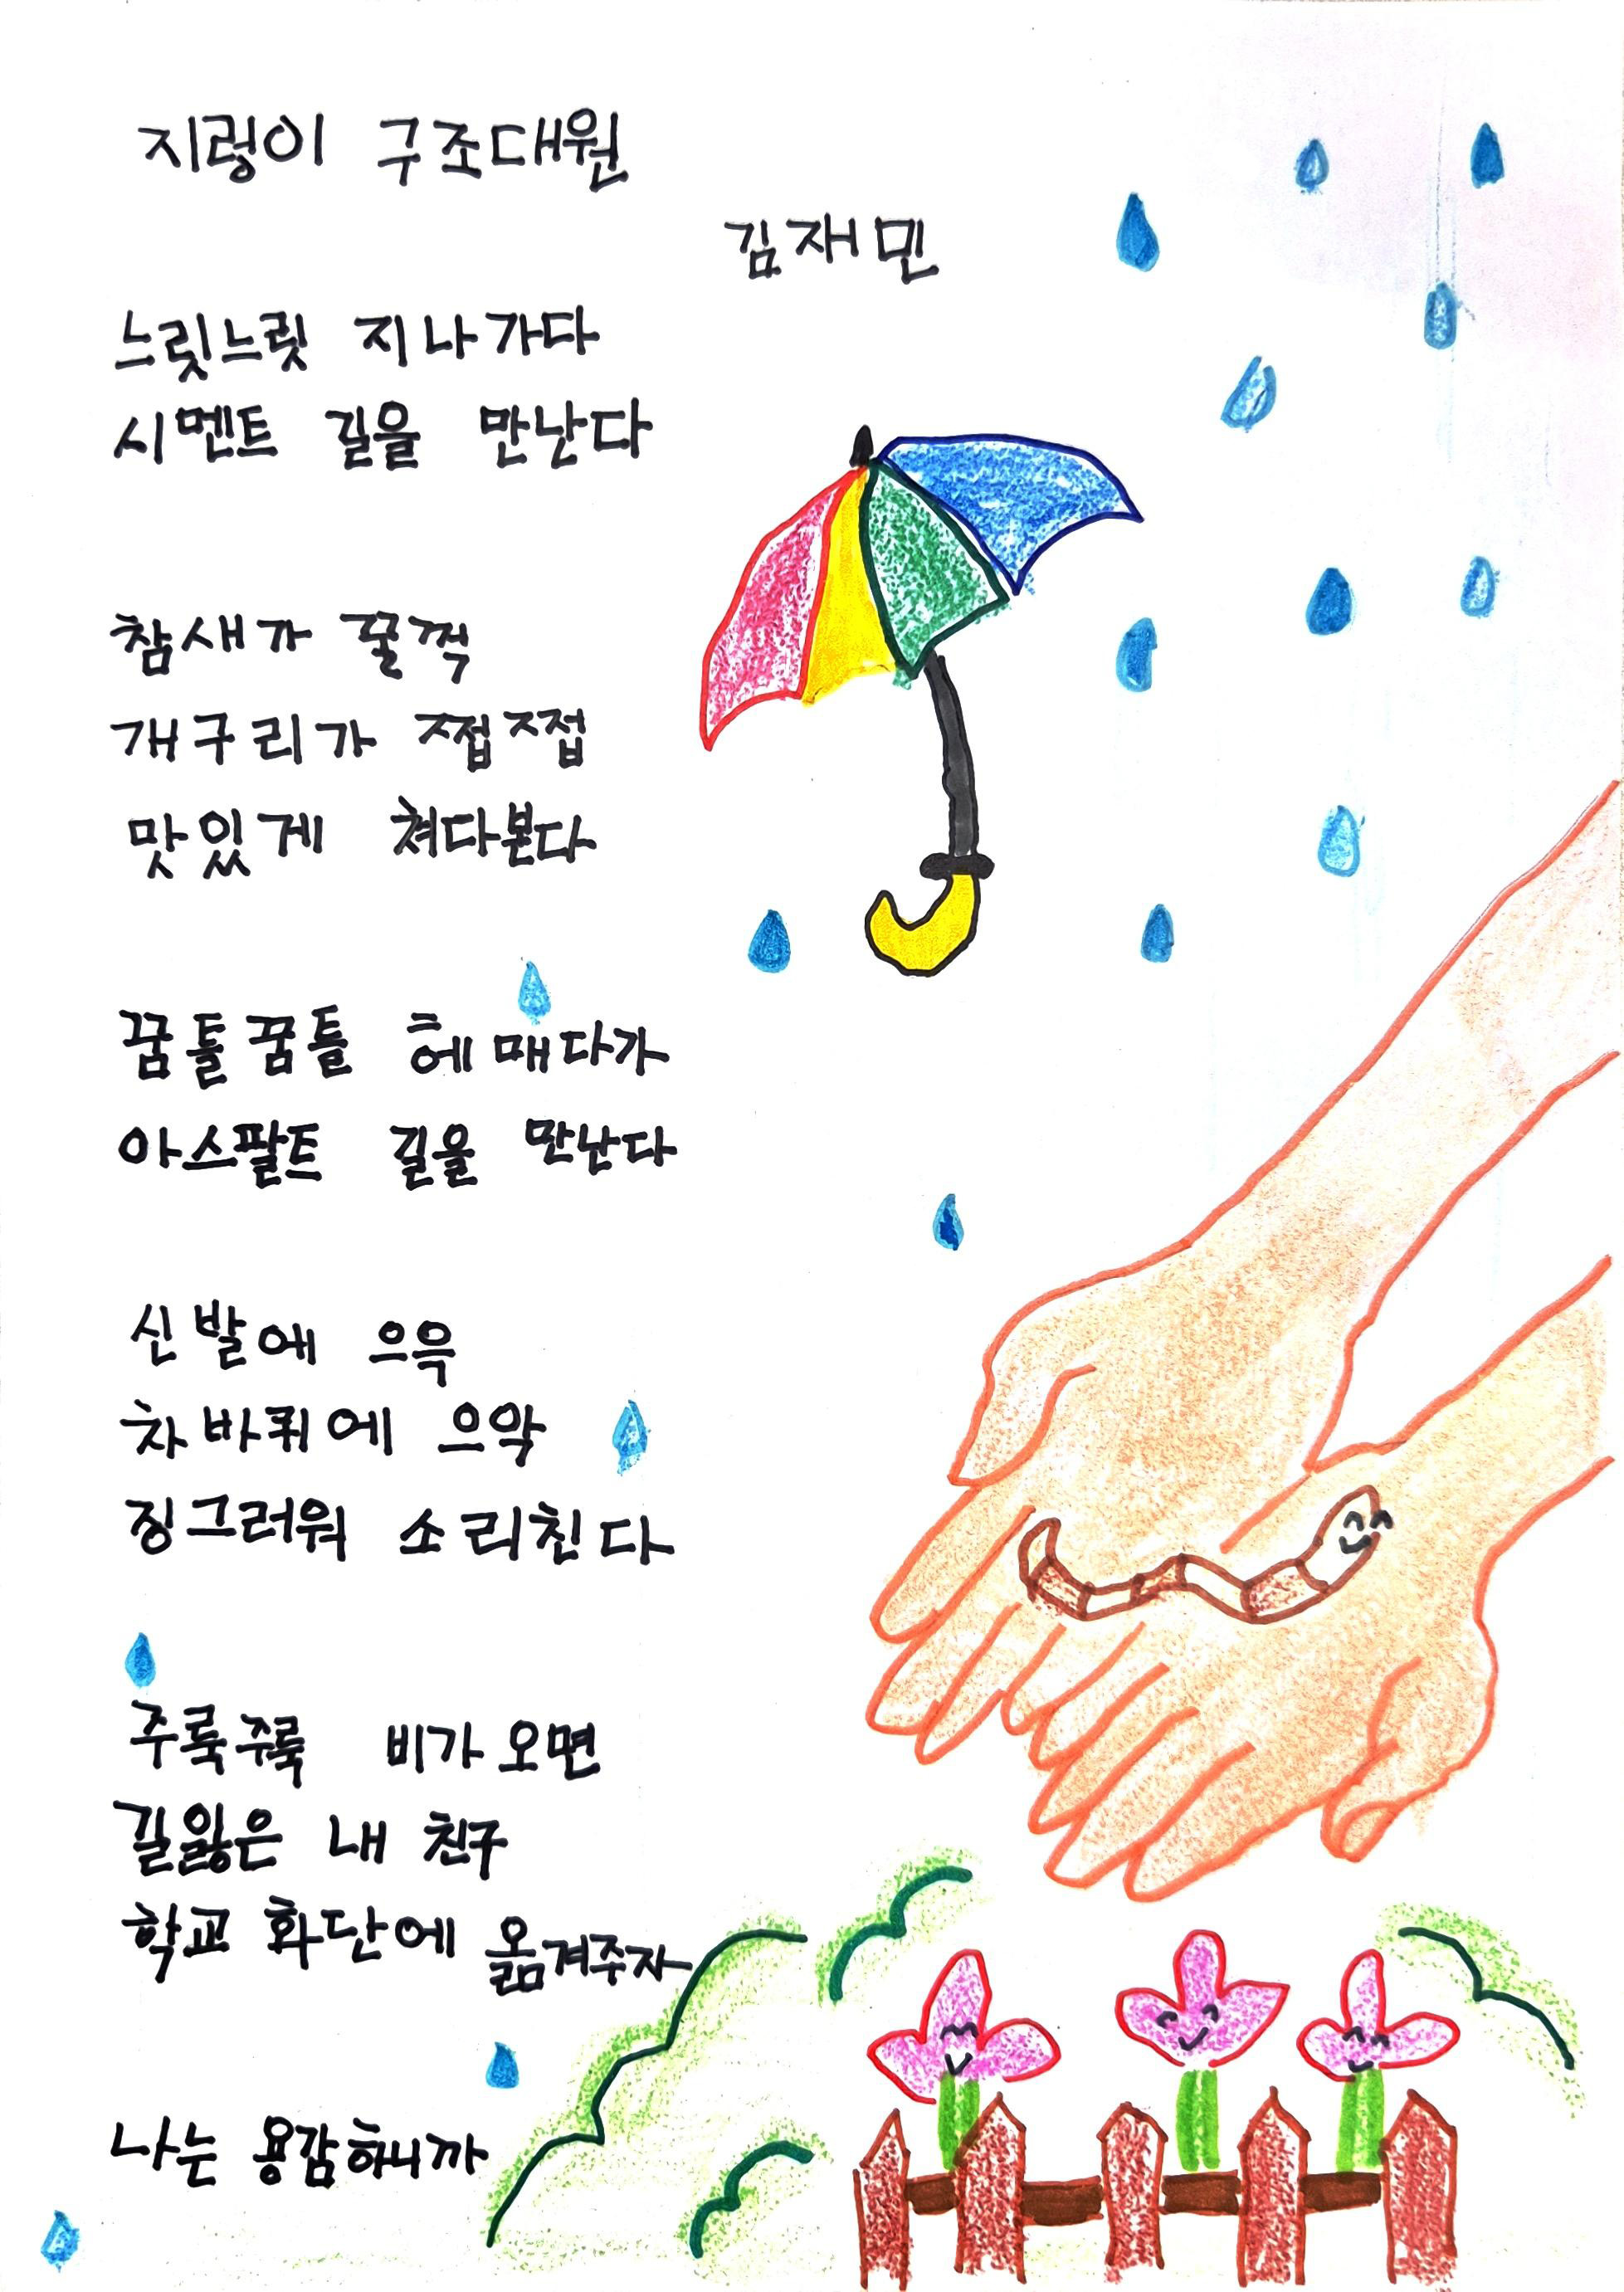 지렁이 구조대원
김재민
느릿느릿 지나가다
시멘트 길을 만난다
참새가 꿀꺽
개구리가 쩝쩝
맛있게 쳐다본다
꿈틀꿈틀 헤매다가
아스팔트 길을 만난다
신발에 으윽
차바퀴에 으악
징그러워 소리친다
주룩주룩 비가오면
길잃은 내 친구
학교 화단에 옮겨주자
나는 용감하니까